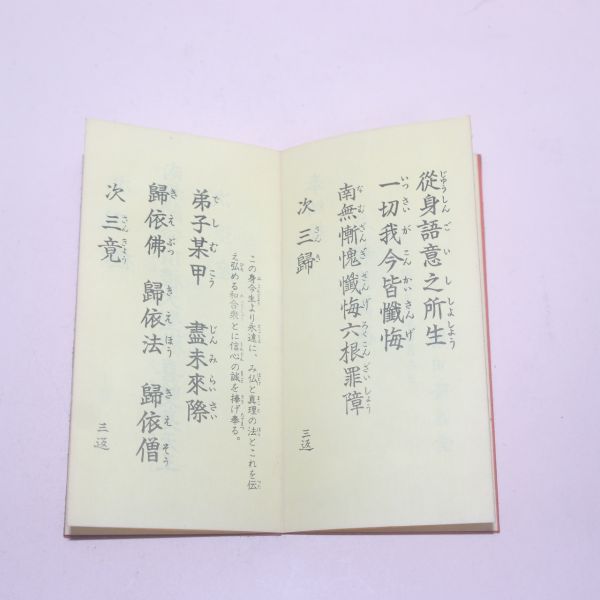 從身語意之所生
一切我今皆懺悔
南無慚愧懺悔六根罪障
三返
次三歸
この身今生より永遠に、み仏と真理の法とこれを伝
え弘める和合衆とに信心の誠を捧げ奉る。
弟子某甲 盡未來際
歸依佛 歸依法 歸依僧
三返
次三竟